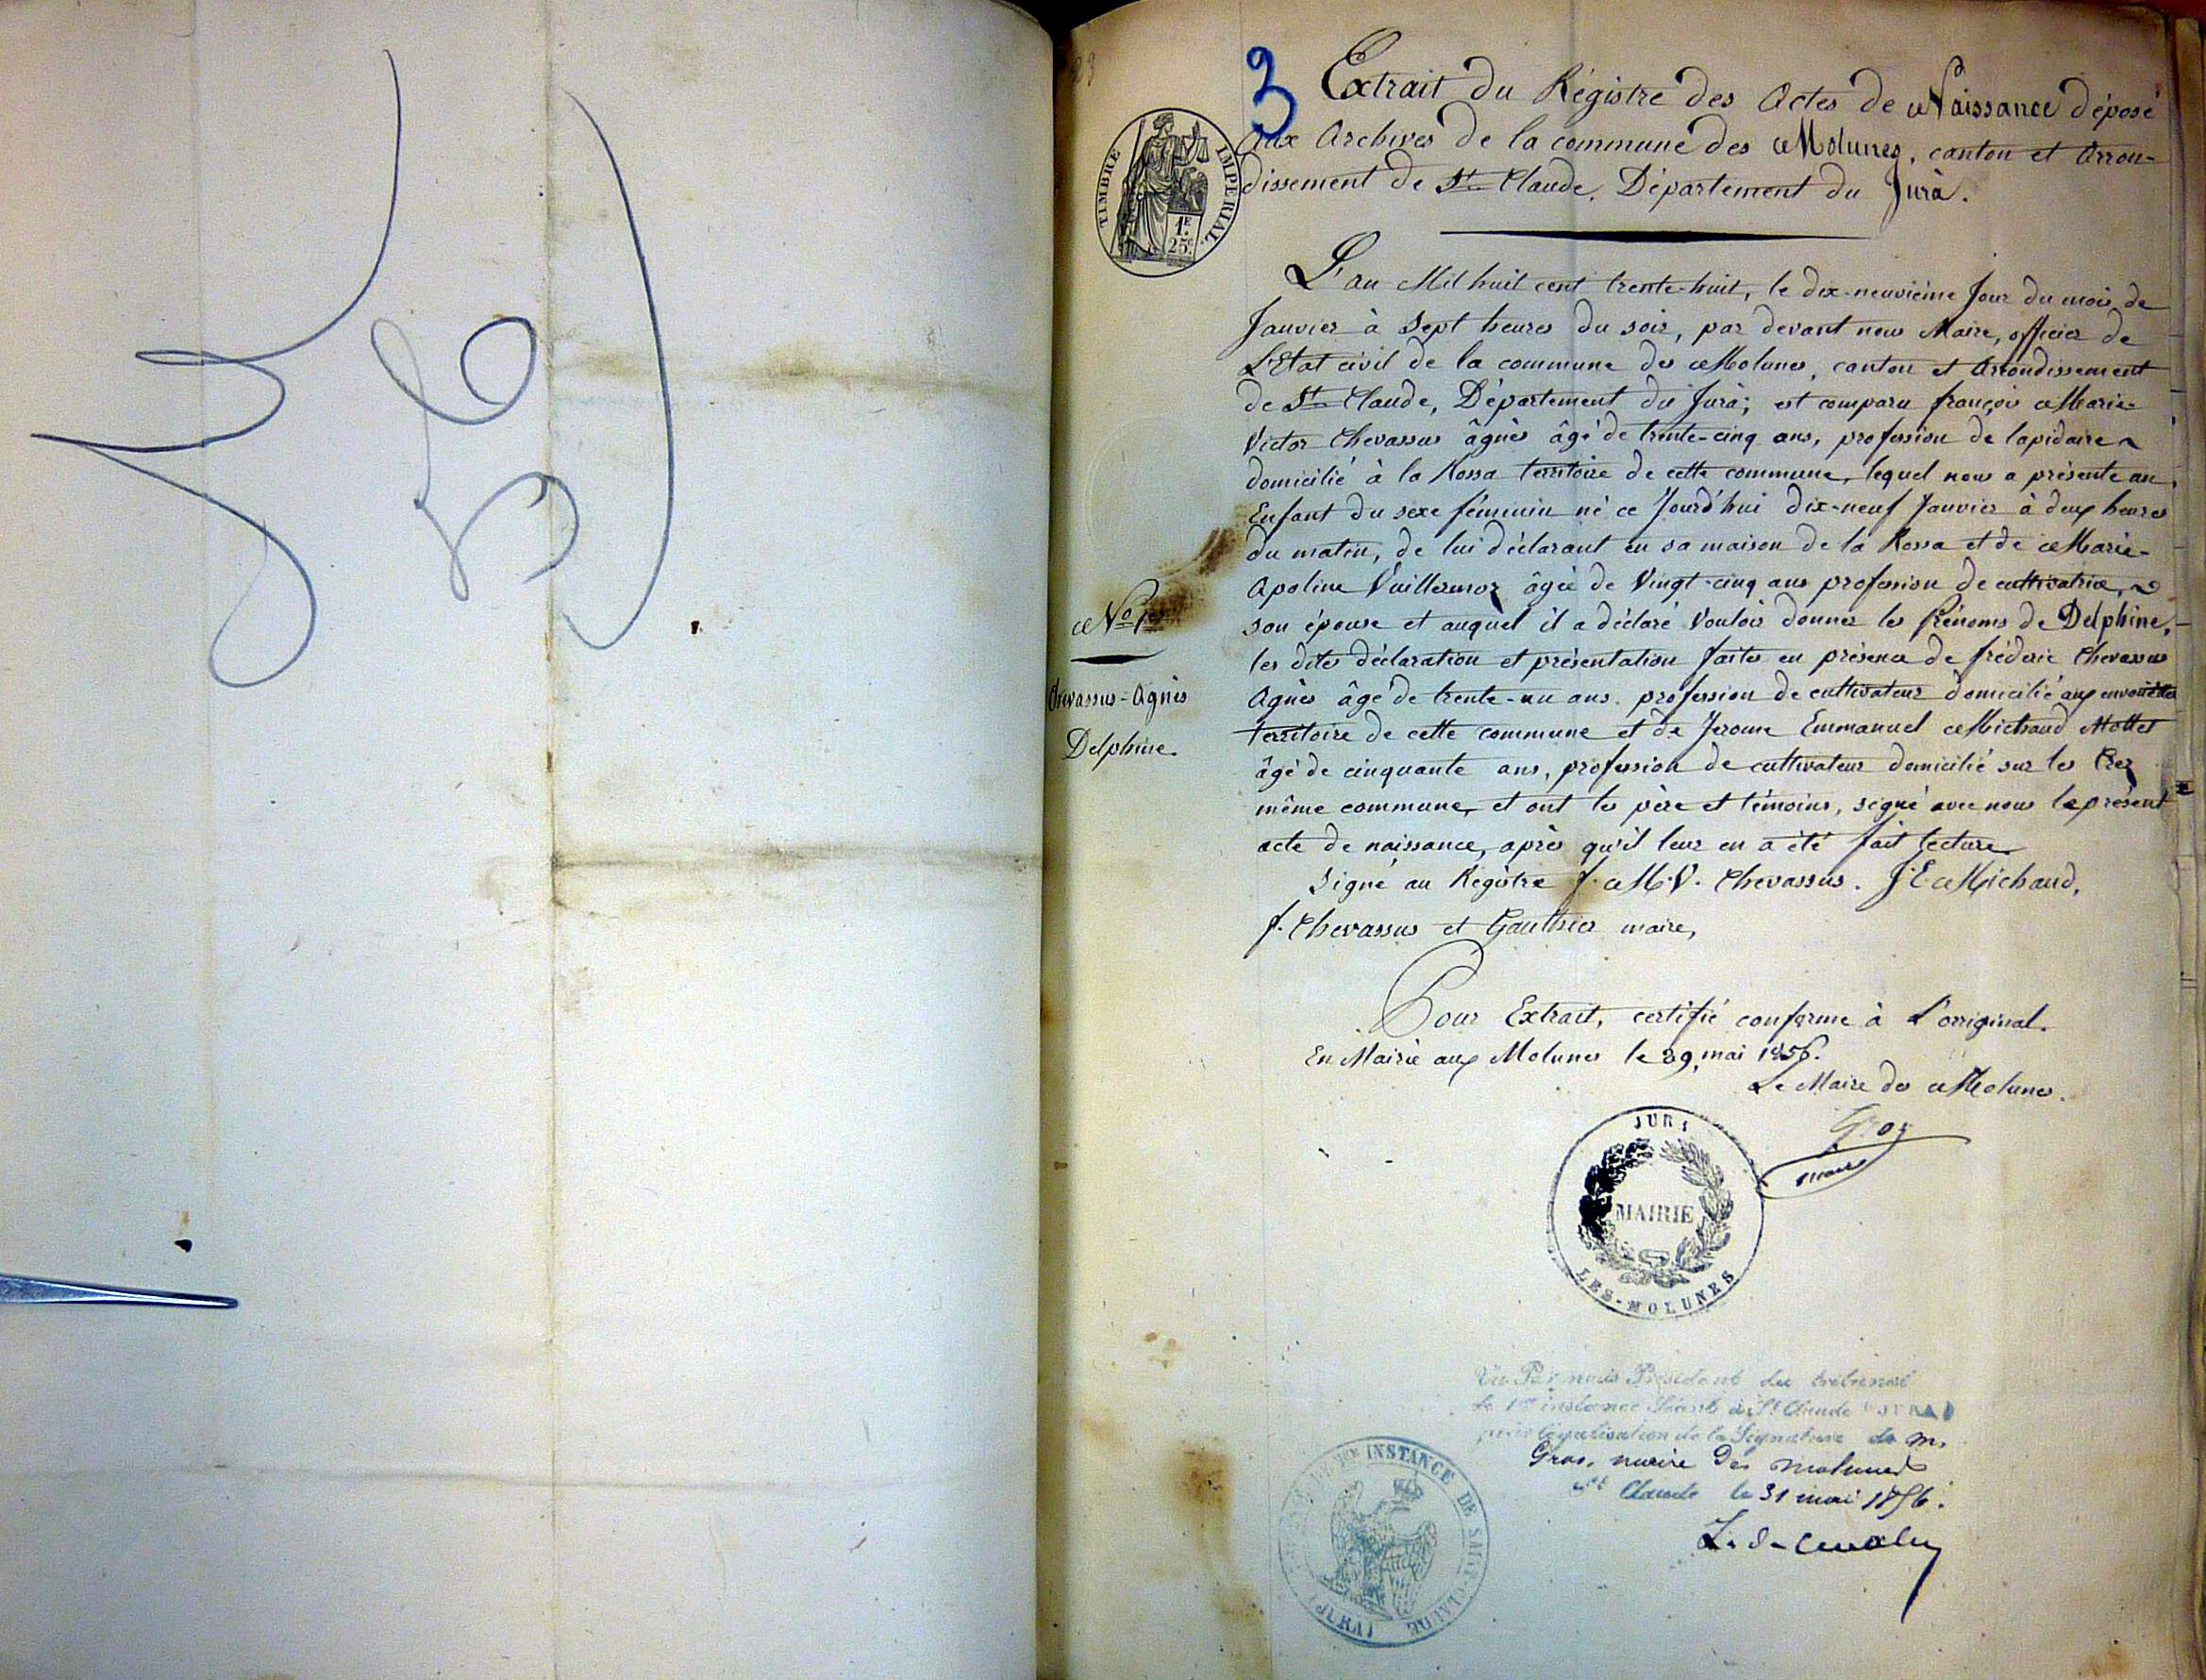 3
Extrait du Régistre des Actes de Naissance déposé
aux Archives de la commune des Molunes, canton et Arron-
dissement de St Claude, Département du Jura.
TIMBRE IMPERIAL
1F
25c
L'an Mil huit cent trente-huit, le dix-neuvième Jour du mois de
Janvier à Sept heures du soir, par devant nous Maire, officier de
L'Etat civil de la commune des Molunes, canton et Arrondissement
de St Claude, Département du Jura; est comparu françois Marie-
Victor Chevassus âgnès âgé de trente-cinq ans, profession de lapidaire
domicilié à la Rossa territoire de cette commune, lequel nous a présenté un
Enfant du sexe féminin né ce Jourd'hui dix-neuf Janvier à deux heures
du matin, de lui déclarant en sa maison de la Rossa et de Marie-
Apoline Vuillermoz âgée de Vingt-cinq ans profession de cultivatrice,
son épouse et auquel il a déclaré Vouloir donner les Prénoms de Delphine,
les dites déclaration et présentation faites en présence de fréderic Chevassus
Agnès âgé de trente-un ans. profession de cultivateur domicilié aux
territoire de cette commune et de Jerome Emmanuel Michaud Mottet
âgé de cinquante ans, profession de cultivateur domicilié sur les Crez
même commune, et ont les père et témoins, signé avec nous le présent
acte de naissance, après qu'il leur en a été fait lecture
Signé au Régistre f. M. V. Chevassus. J. E. Michaud,
f. Chevassus et Gauthier maire,
No 1er
Chevassus-Agnès
Delphine.
Pour Extrait, certifié conforme à L'original.
En Mairie aux Molunes le 29 mai 1856.
Le Maire des Molunes.
Gros
maire
JURA
MAIRIE
LES-MOLUNES
Vu Par nous Président du tribunal
de 1re instance Séant à St Claude (JURA)
pour légalisation de la Signature de M.
Gros, maire des molunes
St Claude le 31 mai 1856.
INSTANCE DE SAINT-CLAUDE
(JURA)